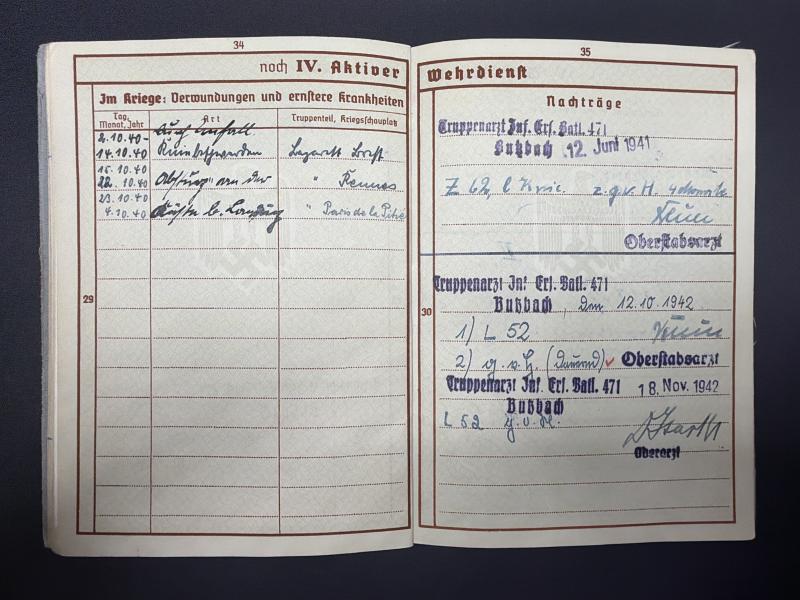 34
noch IV. Aktiver
Im Kriege: Verwundungen und ernstere Krankheiten
Tag, Monat, Jahr
Art
Truppenteil, Kriegsschauplatz
2.10.40-
14.10.40
Lazarett Brest
15.10.40
22.10.40
Absturz an der
" Rennes
23.10.40
4.10.40
Küste b. Landung
" Paris de la Pitié
29
35
Wehrdienst
Nachträge
Truppenarzt Inf. Ers. Batl. 471
Butzbach 12. Juni 1941
Z 62, l z.g.v.H.
Oberstabsarzt
30
Truppenarzt Inf. Ers. Batl. 471
Butzbach, den 12.10.1942
1) L 52
2) g.v.H. (dauernd) Oberstabsarzt
Truppenarzt Inf. Ers. Batl. 471 18. Nov. 1942
Butzbach
L 52 g.v.H.
Oberarzt